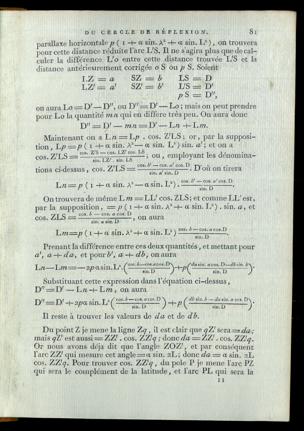 DU CERCLE DE RÉFLEXION. 81
parallaxe horizontale p ( 1 + α sin. λ² + α sin. L² ), on trouvera
pour cette distance réduite l'arc L'S. Il ne s'agira plus que de cal-
culer la différence L'o entre cette distance trouvée L'S et la
distance antérieurement corrigée o S ou p S. Soient
LZ = a SZ = b LS = D
LZ' = a' SZ' = b' L'S = D'
p S = D'',
on aura Lo = D' — D'', ou D'' = D' — Lo ; mais on peut prendre
pour Lo la quantité mn qui en diffère très peu. On aura donc
D'' = D' — mn = D' — Ln + Lm.
Maintenant on a Ln = Lp . cos. Z'LS ; or, par la supposi-
tion, Lp = p ( 1 + α sin. λ² — α sin. L² ) sin. a' ; et on a
cos. Z'LS = ; ou, employant les dénomina-
tions ci-dessus, cos. Z'LS = . D'où on tirera
Ln = p ( 1 + α sin. λ² + α sin. L² ) .
On trouvera de même Lm = LL' cos. ZLS; et comme LL' est,
par la supposition, = p ( 1 + α sin. λ² + α sin. L² ) . sin. a, et
cos. ZLS = , on aura
Lm = p ( 1 + α sin. λ² + α sin. L² )
Prenant la différence entre ces deux quantités, et mettant pour
a', a + da, et pour b', a + db, on aura
Substituant cette expression dans l'équation ci-dessus,
D'' = D' — Ln + Lm, on aura
Il reste à trouver les valeurs de da et de db.
Du point Z je mene la ligne Zq, il est clair que qZ' sera = da ;
mais qZ' est aussi = ZZ' . cos. ZZ'q ; donc da = ZZ' . cos. ZZ'q.
Or nous avons déja dit que l'angle ZOZ', et par conséquent
l'arc ZZ' qui mesure cet angle = α sin. 2L ; donc da = α sin. 2L
cos. ZZ'q. Pour trouver cos. ZZ'q, du pole P je mene l'arc PZ
qui sera le complément de la latitude, et l'arc PL qui sera la
11